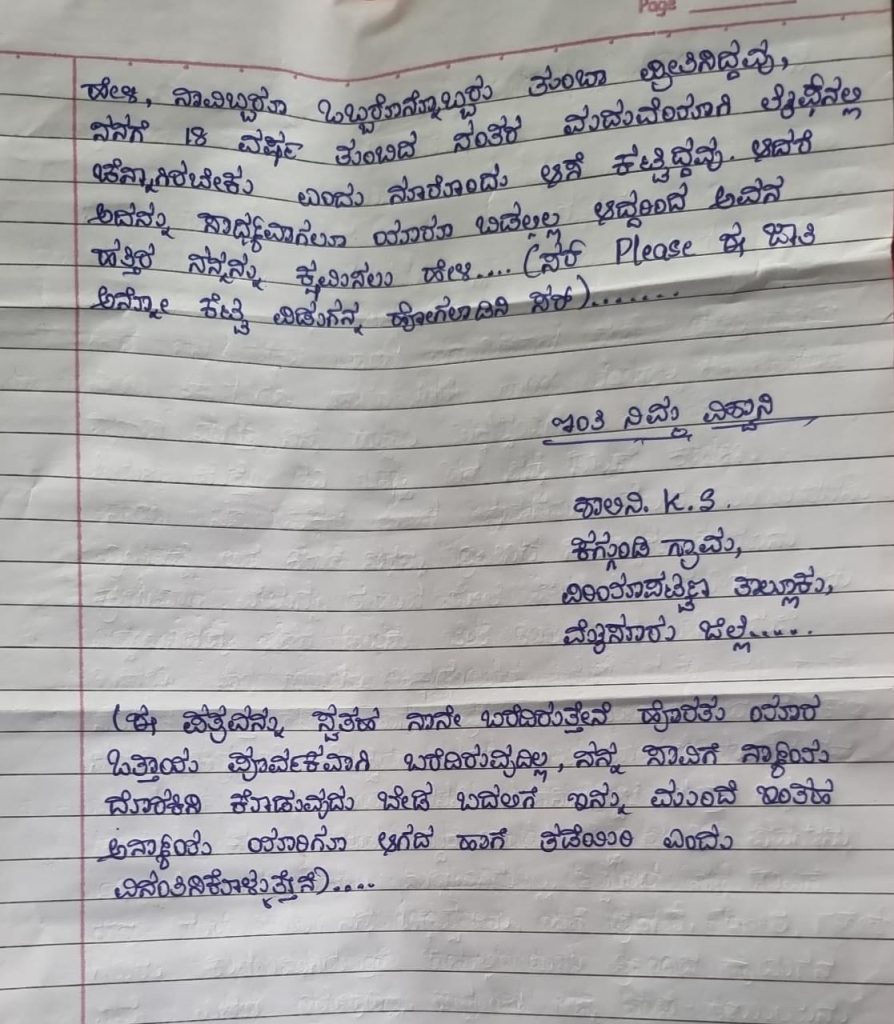 Page
ಹೇಳಿ, ನಾವಿಬ್ಬರೂ ಒಬ್ಬರಿಗೊಬ್ಬರು ತುಂಬಾ ಪ್ರೀತಿಸಿದ್ದೆವು,
ನನಗೆ 18 ವರ್ಷ ತುಂಬಿದ ನಂತರ ಮದುವೆಯಾಗಿ ಲೈಫ್‌ನಲ್ಲಿ
ಚೆನ್ನಾಗಿರಬೇಕು ಎಂದು ನೂರೊಂದು ಆಸೆ ಕಟ್ಟಿದ್ದೆವು. ಆದರೆ
ಅದನ್ನು ಸಾಧ್ಯವಾಗಲೂ ಯಾರೂ ಬಿಡಲಿಲ್ಲ ಆದ್ದರಿಂದ ಅವನ
ಹತ್ತಿರ ನನ್ನನ್ನು ಕ್ಷಮಿಸಲು ಹೇಳಿ.... (ಸರ್ Please ಈ ಜಾತಿ
ಅನ್ನೋ ಕೆಟ್ಟ ಪಿಡುಗನ್ನ ಹೋಗಲಾಡಿಸಿ ಸರ್).......
ಇಂತಿ ನಿಮ್ಮ ವಿಶ್ವಾಸಿ
ಶಾಲಿನಿ. K.S.
ಕಗ್ಗುಂಡಿ ಗ್ರಾಮ,
ಪಿರಿಯಾಪಟ್ಟಣ ತಾಲ್ಲೂಕು,
ಮೈಸೂರು ಜಿಲ್ಲೆ.....
(ಈ ಪತ್ರವನ್ನು ಸ್ವತಹ ನಾನೇ ಬರೆದಿರುತ್ತೇನೆ ಹೊರತು ಯಾರ
ಒತ್ತಾಯ ಪೂರ್ವಕವಾಗಿ ಬರೆದಿರುವುದಿಲ್ಲ, ನನ್ನ ಸಾವಿಗೆ ನ್ಯಾಯ
ದೊರಕಿಸಿ ಕೊಡುವುದು ಬೇಡ ಬದಲಿಗೆ ಇನ್ನು ಮುಂದೆ ಇಂತಹ
ಅನ್ಯಾಯ ಯಾರಿಗೂ ಆಗದ ಹಾಗೆ ತಡೆಯಿರಿ ಎಂದು
ವಿನಂತಿಸಿಕೊಳ್ಳುತ್ತೇನೆ)....